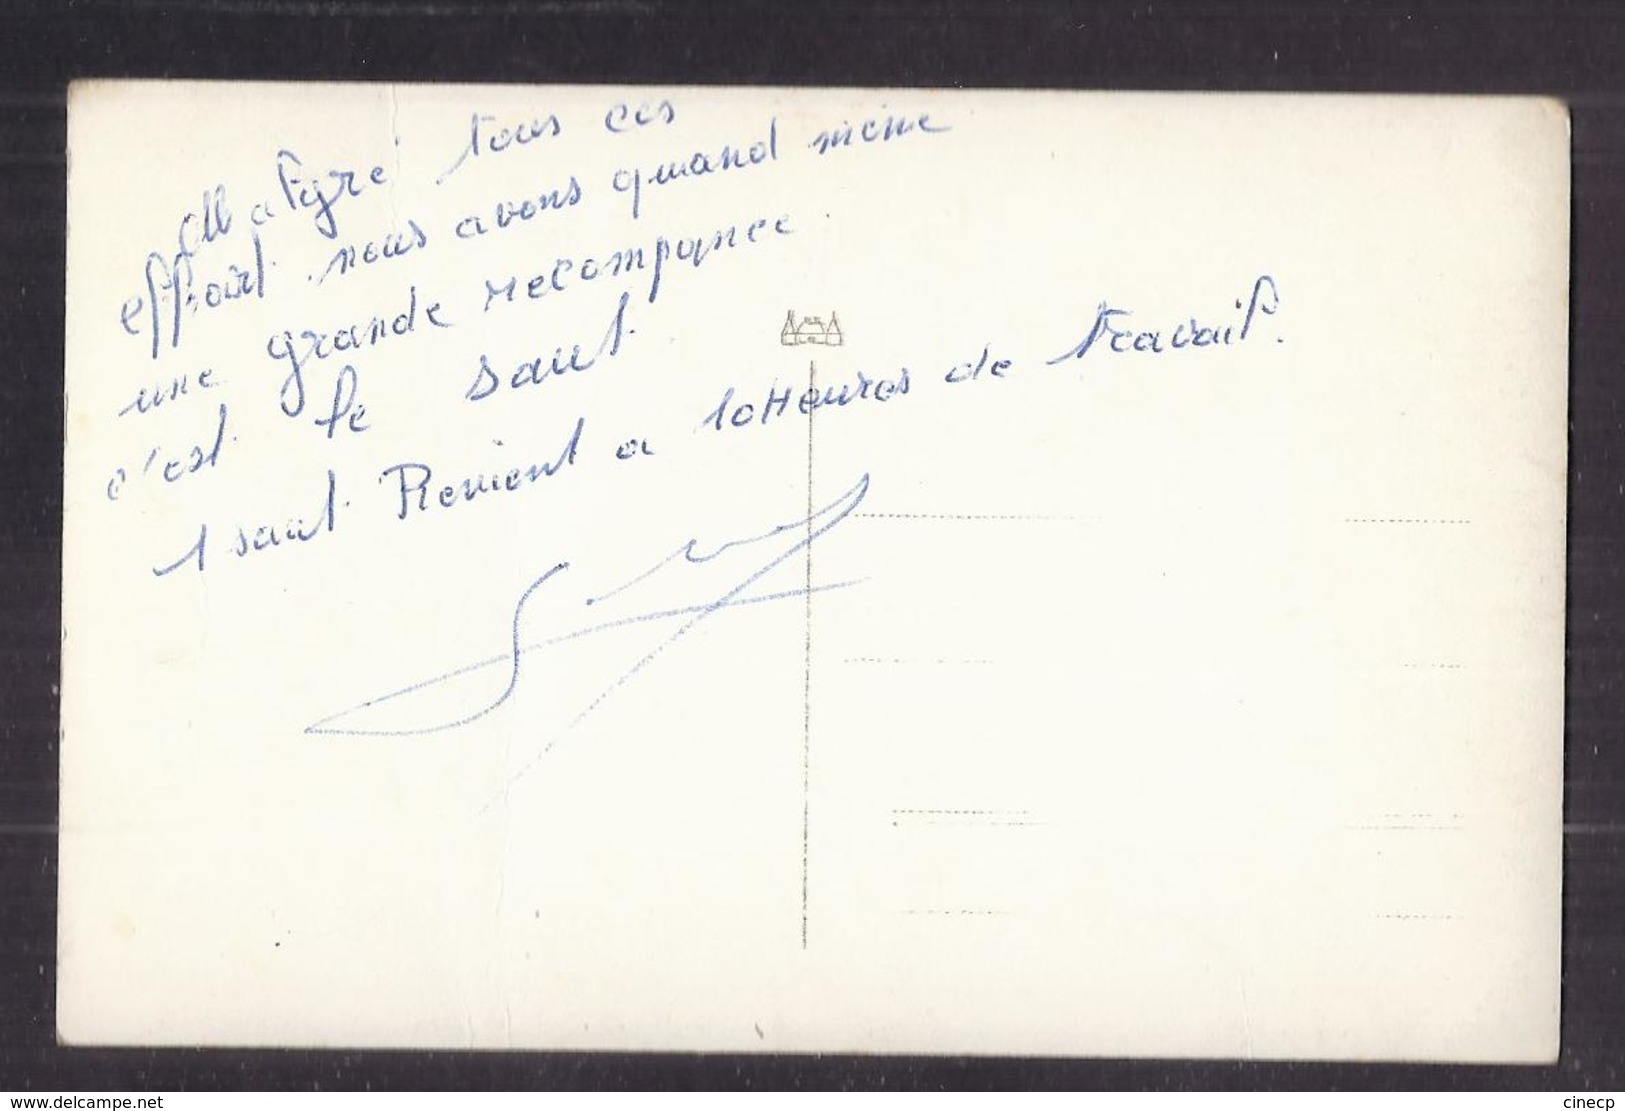 Malgré tous ces
effort nous avons quand même
une grande recompance
c'est le saut.
1 saut Revient a 10 Heures de travail.
www.delcampe.net
cinecp